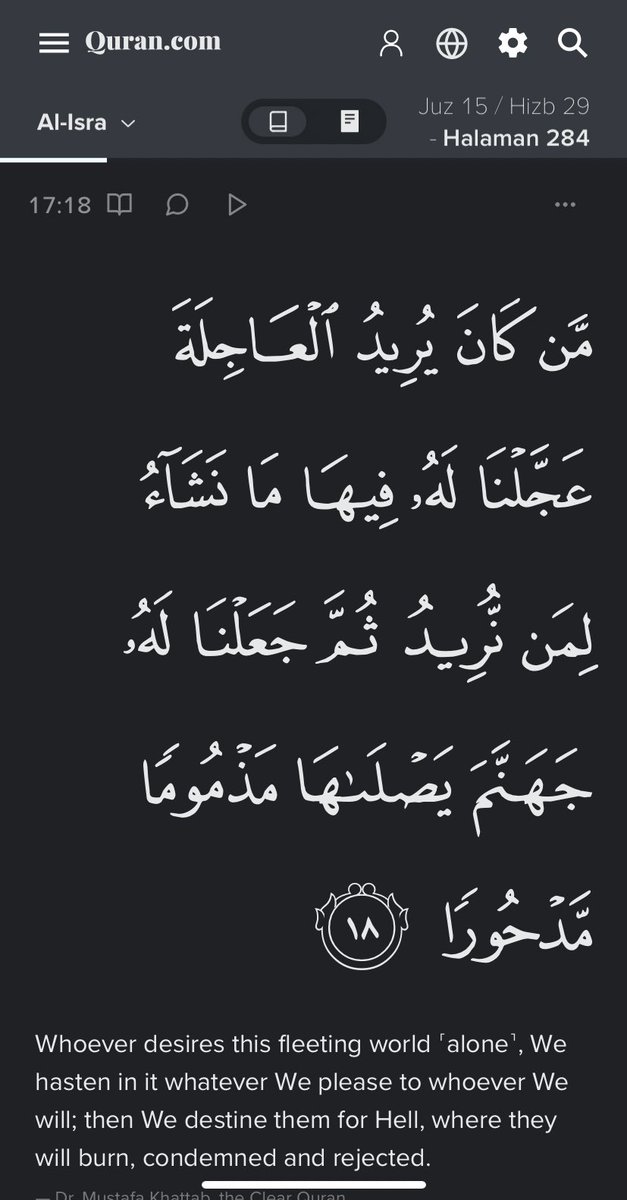 Quran.com
Al-Isra
Juz 15 / Hizb 29
- Halaman 284
17:18
مَّن كَانَ يُرِيدُ ٱلْعَاجِلَةَ
عَجَّلْنَا لَهُۥ فِيهَا مَا نَشَآءُ
لِمَن نُّرِيدُ ثُمَّ جَعَلْنَا لَهُۥ
جَهَنَّمَ يَصْلَىٰهَا مَذْمُومًا
مَّدْحُورًا ١٨
Whoever desires this fleeting world ˹alone˺, We
hasten in it whatever We please to whoever We
will; then We destine them for Hell, where they
will burn, condemned and rejected.
— Dr. Mustafa Khattab, the Clear Quran